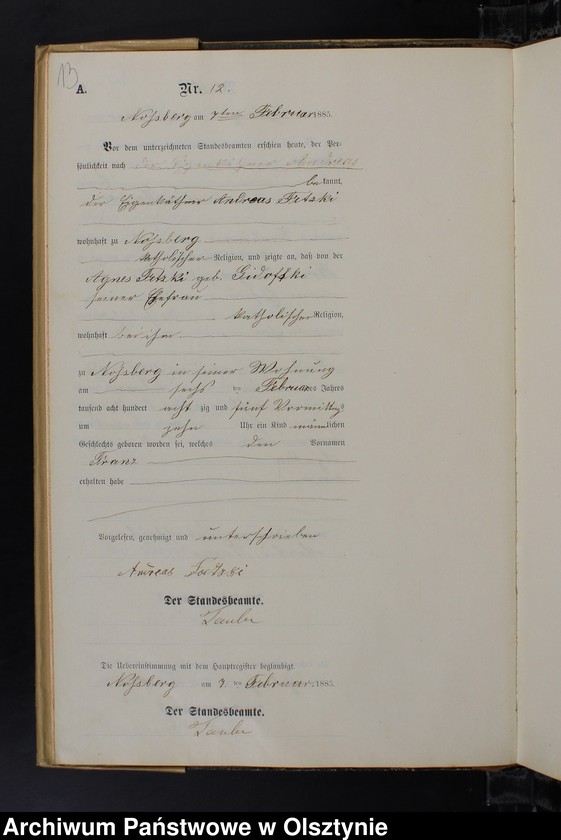 13
A. Nr. 12.
Noßberg am 7ten Februar 1885.
Vor dem unterzeichneten Standesbeamten erschien heute, der Per-
sönlichkeit nach der Eigenkäthner Andreas
be kannt,
der Eigenkäthner Andreas Fetzki
wohnhaft zu Noßberg
katholischer Religion, und zeigte an, daß von der
Agnes Fetzki geb. Gidofski
seiner Ehefrau
katholischer Religion,
wohnhaft bei ihm
zu Noßberg in seiner Wohnung
am sechs ten Februar des Jahres
tausend acht hundert acht zig und fünf Vormittags
um zehn Uhr ein Kind männlichen
Geschlechts geboren worden sei, welches den Vornamen
Franz
erhalten habe
Vorgelesen, genehmigt und unterschrieben
Andreas
Der Standesbeamte.
Die Uebereinstimmung mit dem Hauptregister beglaubigt
Noßberg am 7. ten Februar 1885.
Der Standesbeamte.
Archiwum Państwowe w Olsztynie